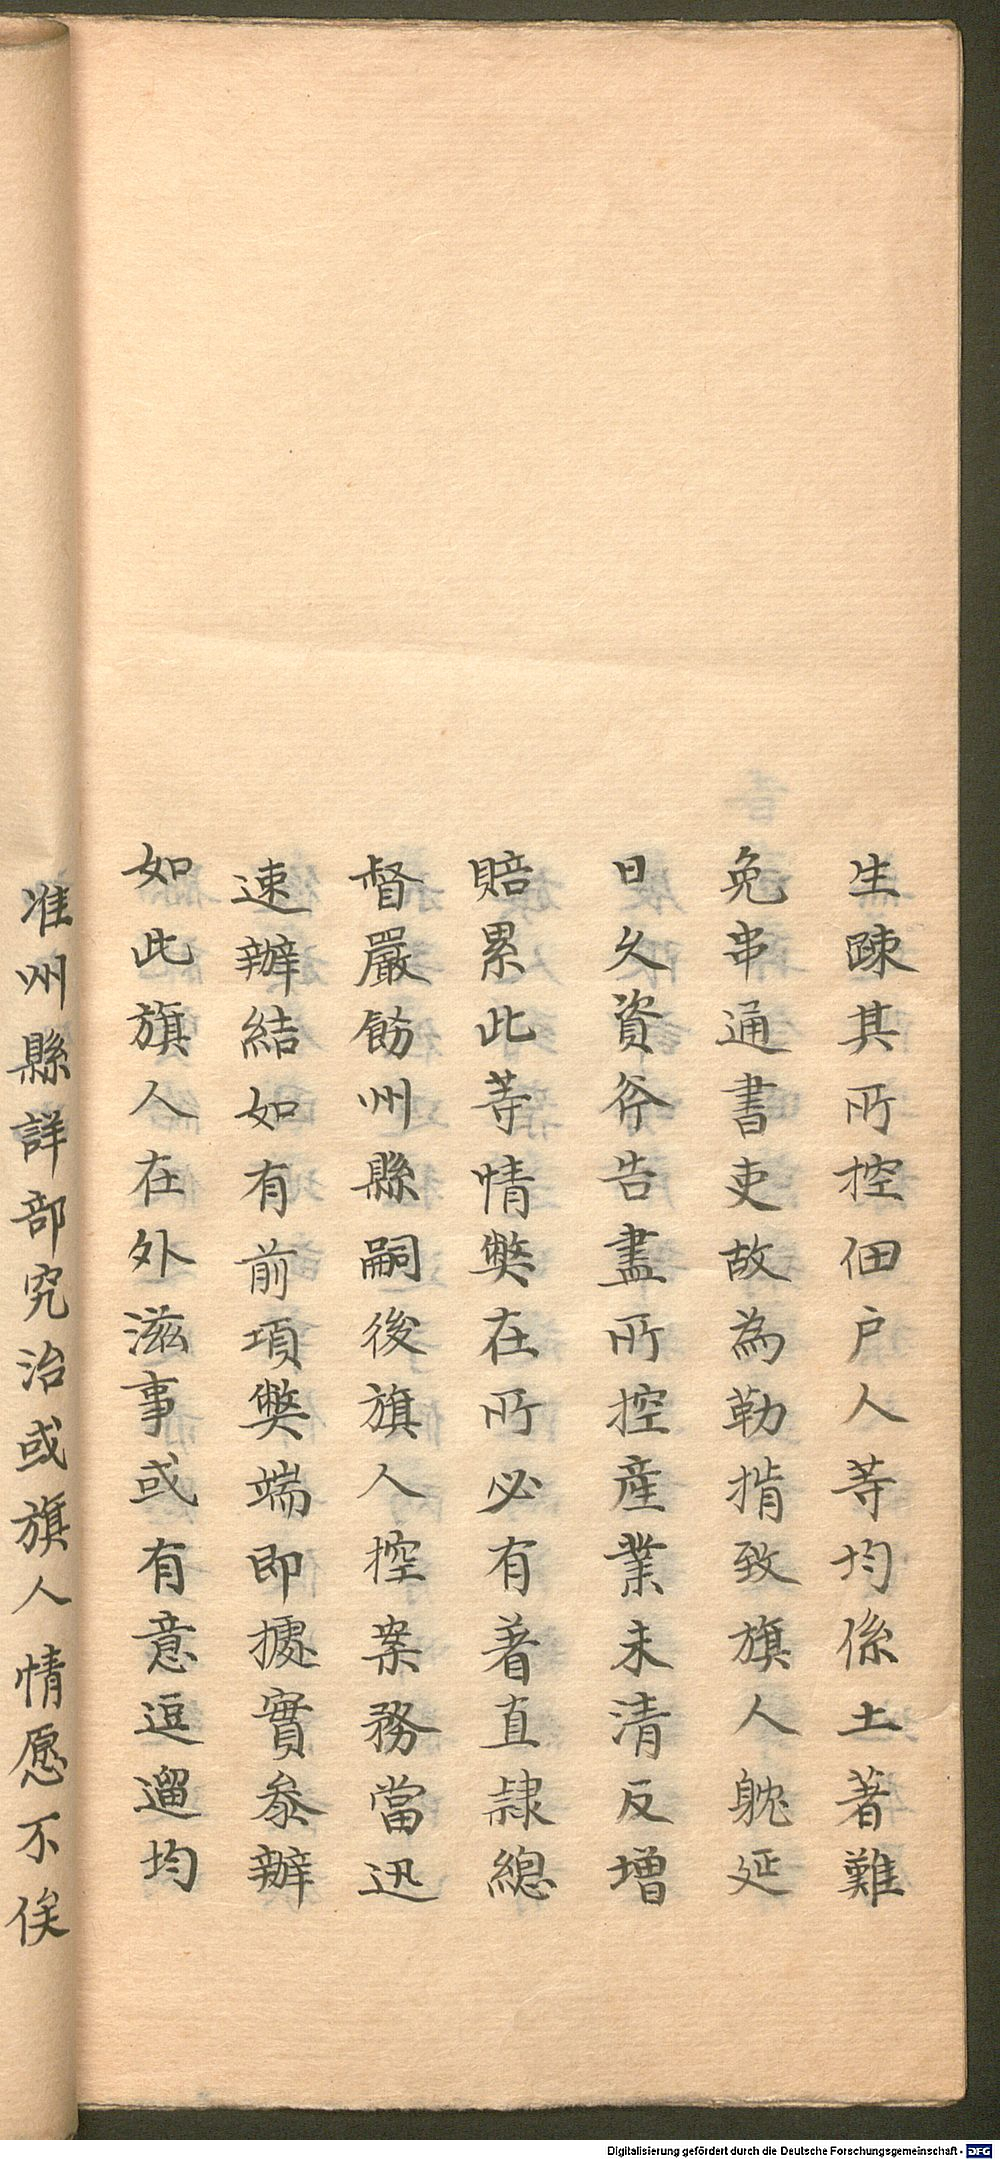 生疎其所控佃户人等均係土著難
免串通書吏故為勒掯致旗人躭延
日久資斧告盡所控産業未清反增
賠累此等情弊在所必有著直隷總
督嚴飭州縣嗣後旗人控案務當迅
速辦結如有前項弊端即據實叅辦
如此旗人在外滋事或有意逗遛均
准州縣詳部究治或旗人情愿不俟
Digitalisierung gefördert durch die Deutsche Forschungsgemeinschaft - DFG